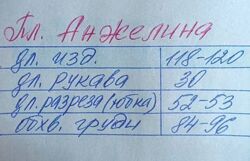 Пл. Анжелина
дл. изд. 118-120
дл. рукава 30
дл. разреза (юбка) 52-53
обхв. груди 84-96